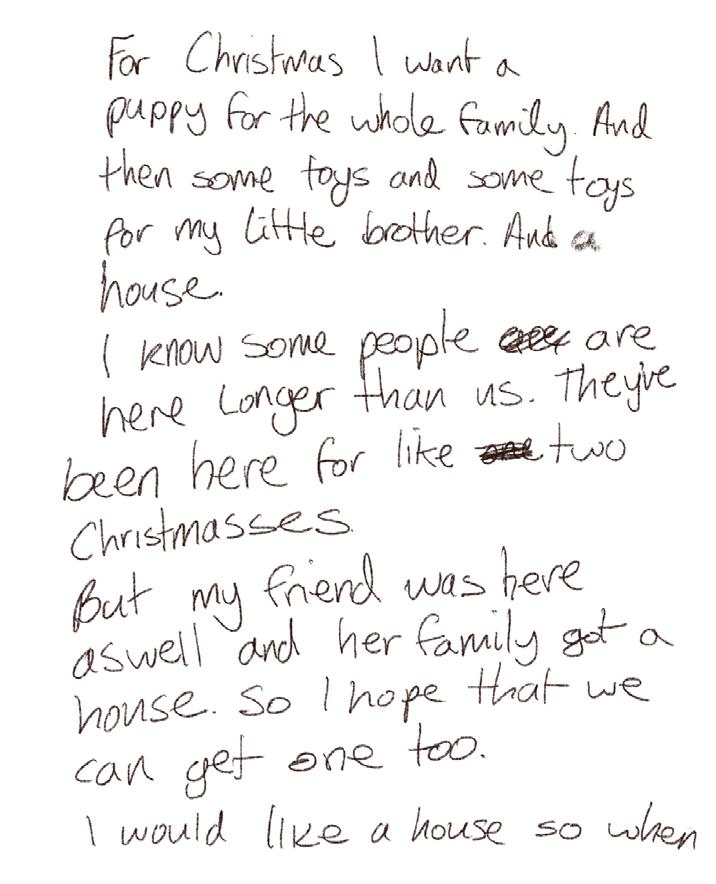 For Christmas I want a
puppy for the whole family. And
then some toys and some toys
for my little brother. And a
house.
I know some people are
here longer than us. They've
been here for like two
Christmasses.
But my friend was here
aswell and her family got a
house. So I hope that we
can get one too.
I would like a house so when